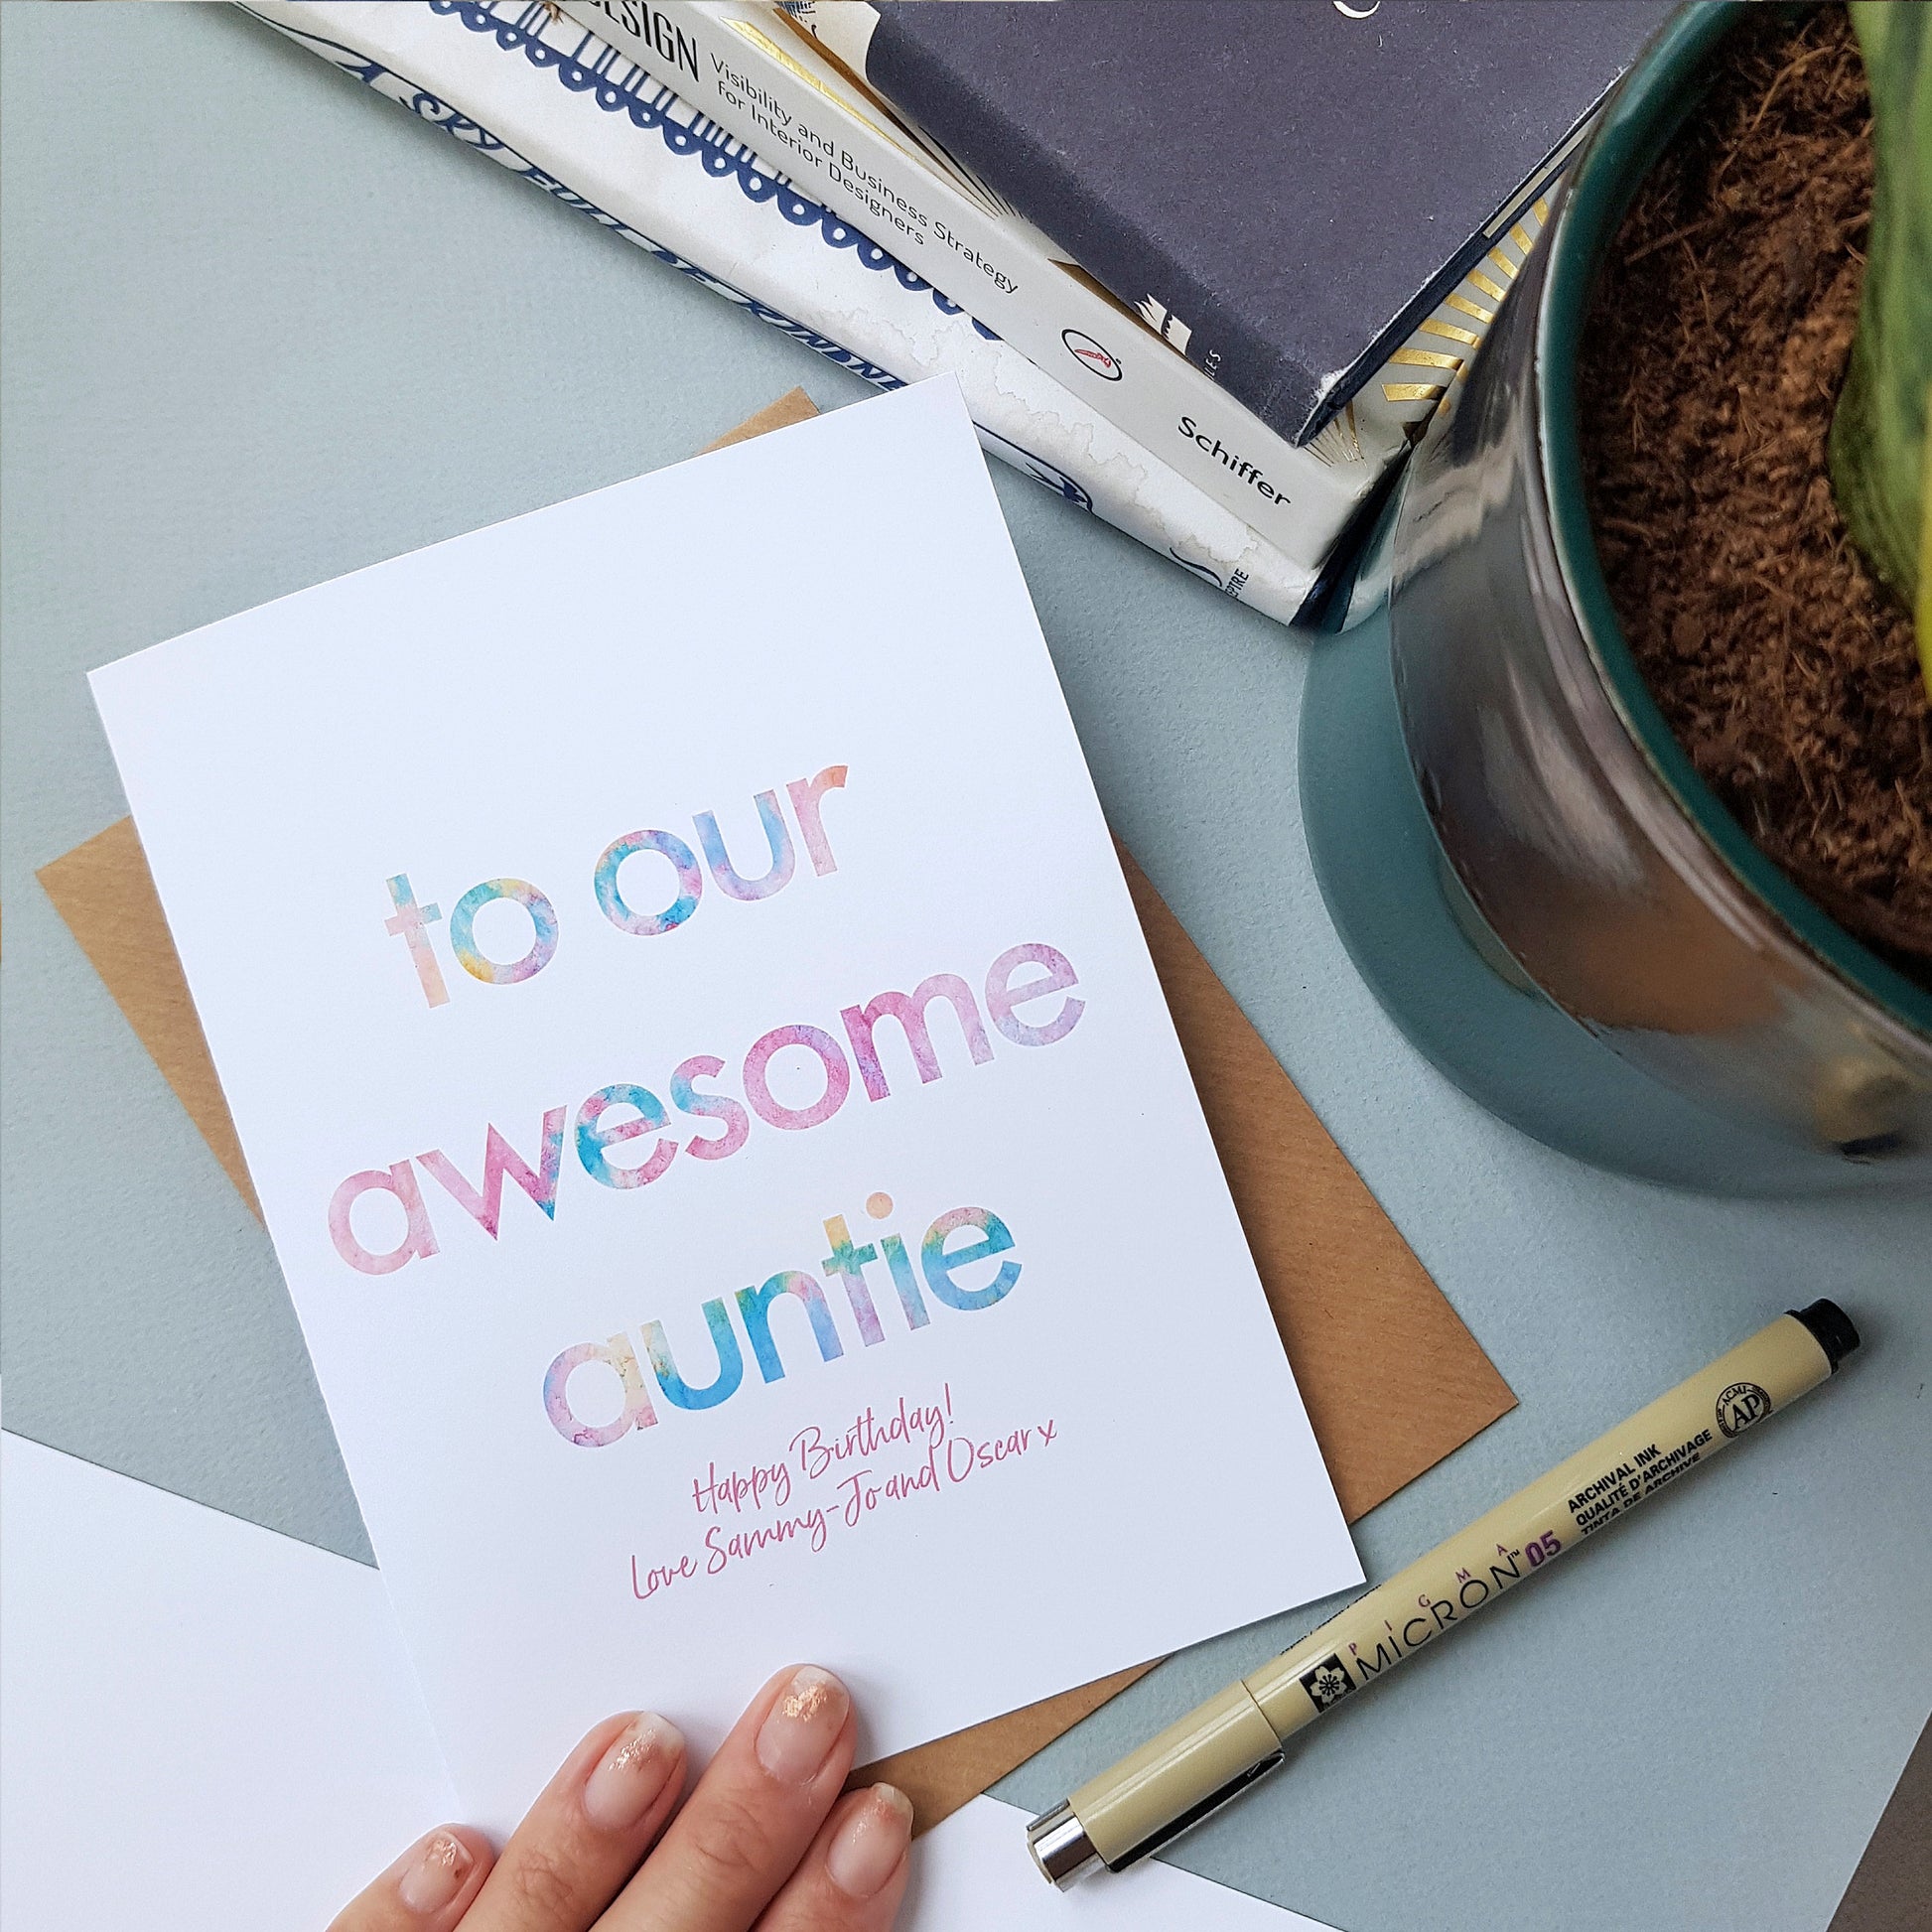 DESIGN
Visibility and Business Strategy
for Interior Designers
Schiffer
SKY FULL OF KINDN
to our
awesome
auntie
Happy Birthday!
Love Sammy-Jo and Oscar x
PIGMA
MICRON™ 05
ARCHIVAL INK
QUALITÉ D'ARCHIVAGE
TINTA DE ARCHIVE
ACMI
AP